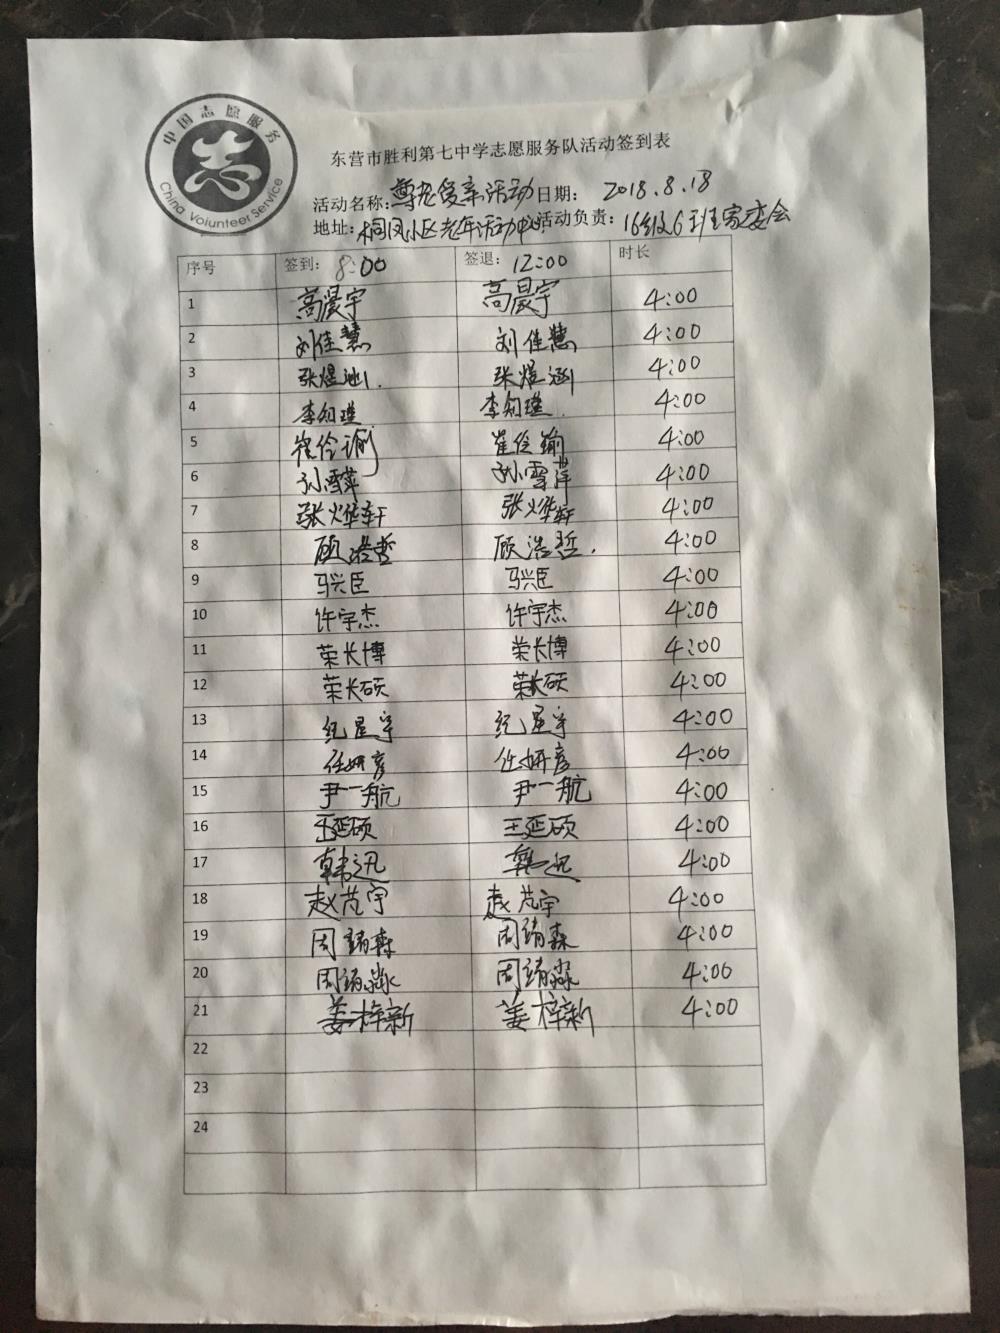 中国志愿服务
志
China Volunteer Service
东营市胜利第七中学志愿服务队活动签到表
活动名称:尊老爱亲活动 日期: 2018.8.18
地址:桐凤小区老年活动中心 活动负责:16级6班家委会
序号 签到: 8:00 签退: 12:00 时长
1 高晨宇 高晨宇 4:00
2 刘佳慧 刘佳慧 4:00
3 张煜涵 张煜涵 4:00
4 李知瑾 李知瑾 4:00
5 崔俭瑜 崔俭瑜 4:00
6 孙雪萍 孙雪萍 4:00
7 张烨轩 张烨轩 4:00
8 顾浩哲 顾浩哲 4:00
9 马兴臣 马兴臣 4:00
10 许宇杰 许宇杰 4:00
11 荣长博 荣长博 4:00
12 荣长硕 荣长硕 4:00
13 纪星宇 纪星宇 4:00
14 任妍彦 任妍彦 4:00
15 尹一航 尹一航 4:00
16 王延硕 王延硕 4:00
17 韩迅 韩迅 4:00
18 赵芃宇 赵芃宇 4:00
19 周靖森 周靖森 4:00
20 周靖淼 周靖淼 4:00
21 姜梓新 姜梓新 4:00
22
23
24